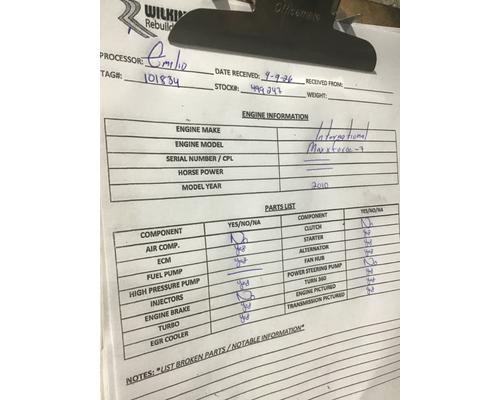 WILKIN
Rebuild
PROCESSOR: Emilio DATE RECEIVED: 9-9-26 RECEIVED FROM:
TAG#: 101834 STOCK#: 499247 WEIGHT:
ENGINE INFORMATION
ENGINE MAKE International
ENGINE MODEL Maxxforce-7
SERIAL NUMBER / CPL
HORSE POWER
MODEL YEAR 2010
PARTS LIST
COMPONENT YES/NO/NA COMPONENT YES/NO/NA
AIR COMP. No CLUTCH No
ECM yes STARTER yes
FUEL PUMP yes ALTERNATOR yes
HIGH PRESSURE PUMP FAN HUB No
INJECTORS yes POWER STEERING PUMP yes
ENGINE BRAKE No TURN 360 yes
TURBO yes ENGINE PICTURED yes
EGR COOLER yes TRANSMISSION PICTURED
NOTES: *LIST BROKEN PARTS / NOTABLE INFORMATION*